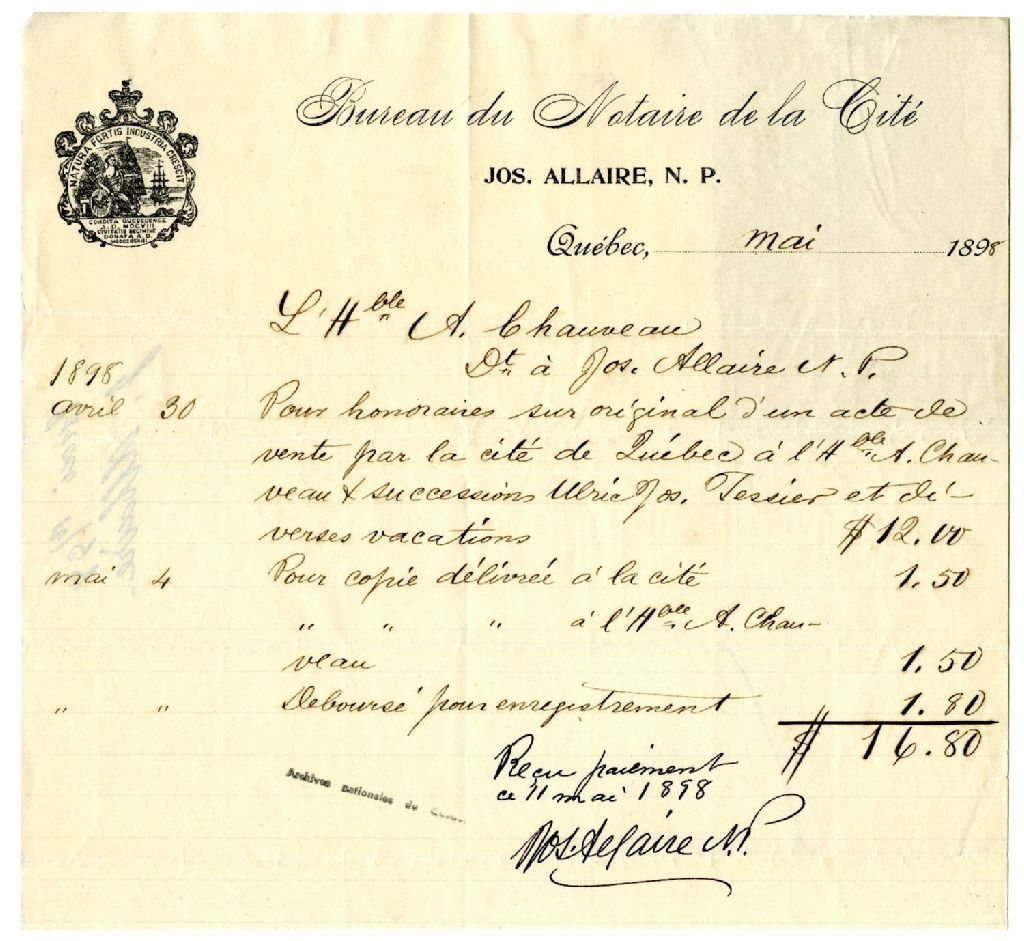 Bureau du Notaire de la Cité
JOS. ALLAIRE, N. P.
NATURA FORTIS INDUSTRIA CRESCIT
CONDITA QUEBECENSE
A.D. MDCVIII
CIVITATIS REGIMINE
DONATA A.D.
Québec, mai 1898
L'Hble A. Chauveau
Dt à Jos. Allaire N. P.
1898
avril 30 Pour honoraires sur original d'un acte de
vente par la cité de Québec à l'Hble A. Chau-
veau & successions Ulric Jos. Tessier et di-
verses vacations $12.00
mai 4 Pour copie délivrée à la cité 1.50
" " " à l'Hble A. Chau-
veau 1.50
" " Deboursé pour enregistrement 1.80
$ 16.80
Reçu paiement
ce 11 mai 1898
Jos. Allaire N.P.
Archives nationales du Québec